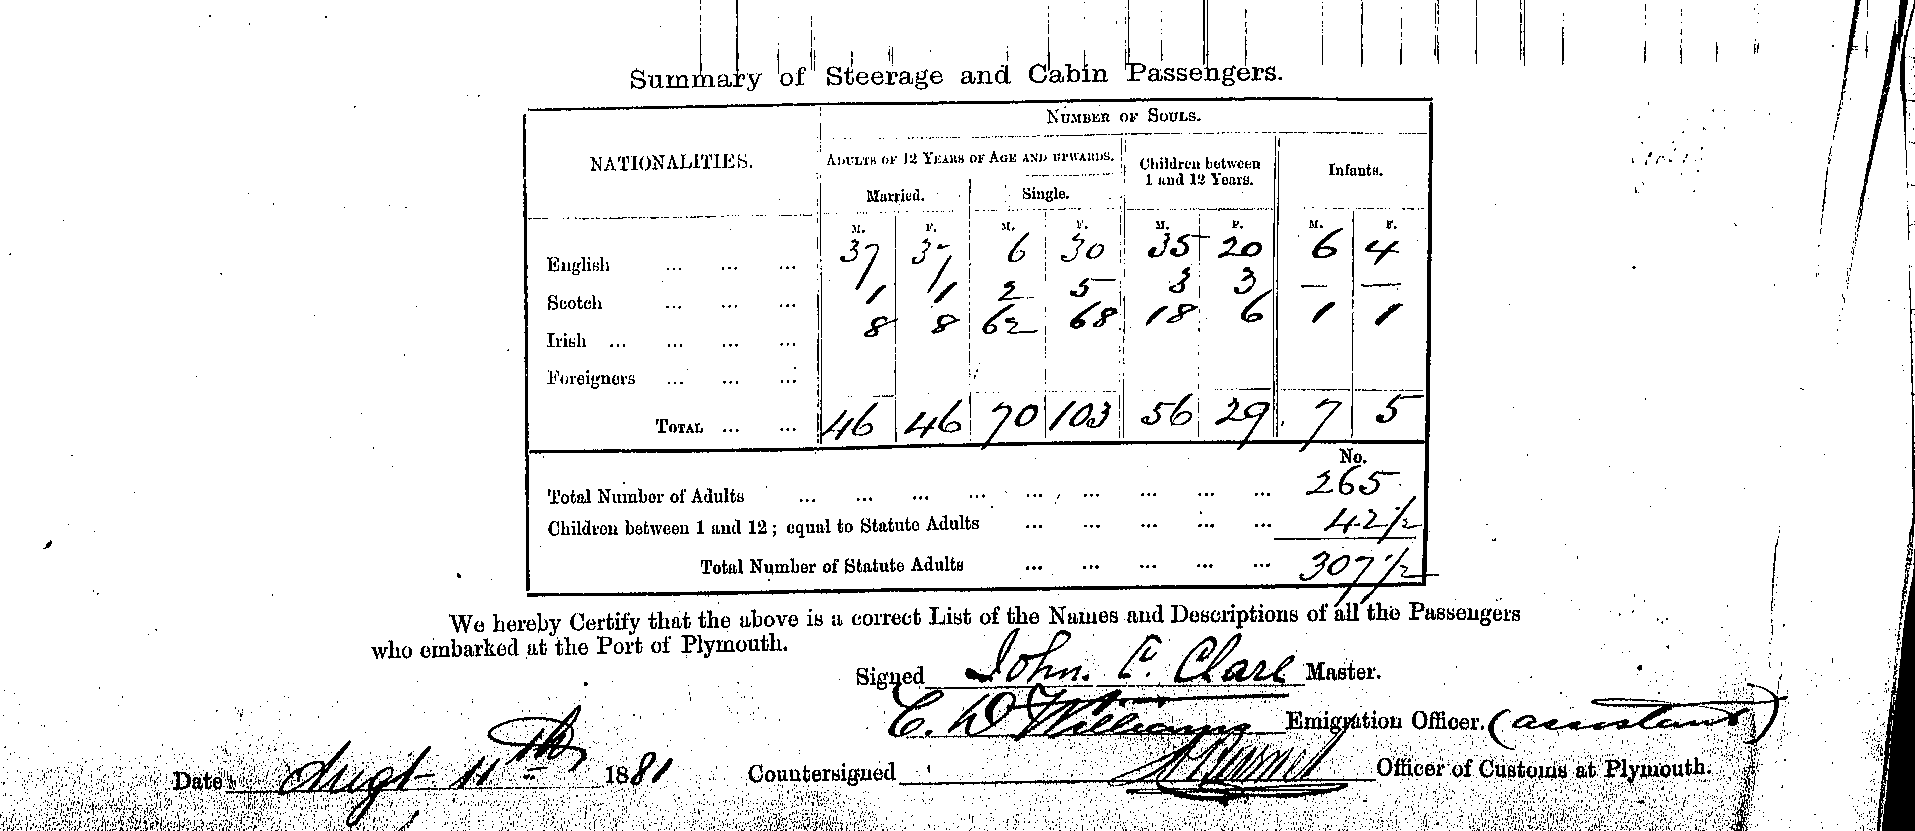 Summary of Steerage and Cabin Passengers.
NUMBER OF SOULS.
NATIONALITIES. ADULTS OF 12 YEARS OF AGE AND UPWARDS. Children between 1 and 12 Years. Infants.
Married. Single.
M. F. M. F. M. F. M. F.
English ... ... ... 37 37 6 30 35 20 6 4
Scotch ... ... ... 1 1 2 5 3 3 — —
Irish ... ... ... ... 8 8 62 68 18 6 1 1
Foreigners ... ... ...
TOTAL ... ... 46 46 70 103 56 29 7 5
No.
Total Number of Adults ... ... ... ... ... ... ... ... ... 265
Children between 1 and 12; equal to Statute Adults ... ... ... ... ... 42 1/2
Total Number of Statute Adults ... ... ... ... ... 307 1/2
We hereby Certify that the above is a correct List of the Names and Descriptions of all the Passengers
who embarked at the Port of Plymouth.
Signed John. C. Clare Master.
C. W Williams Emigration Officer. (assistant)
Date Augt 11th 1881 Countersigned Officer of Customs at Plymouth.